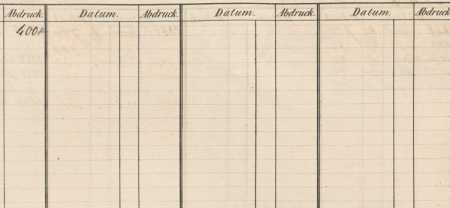 Abdruck. Datum. Abdruck. Datum. Abdruck. Datum. Abdruck.
400